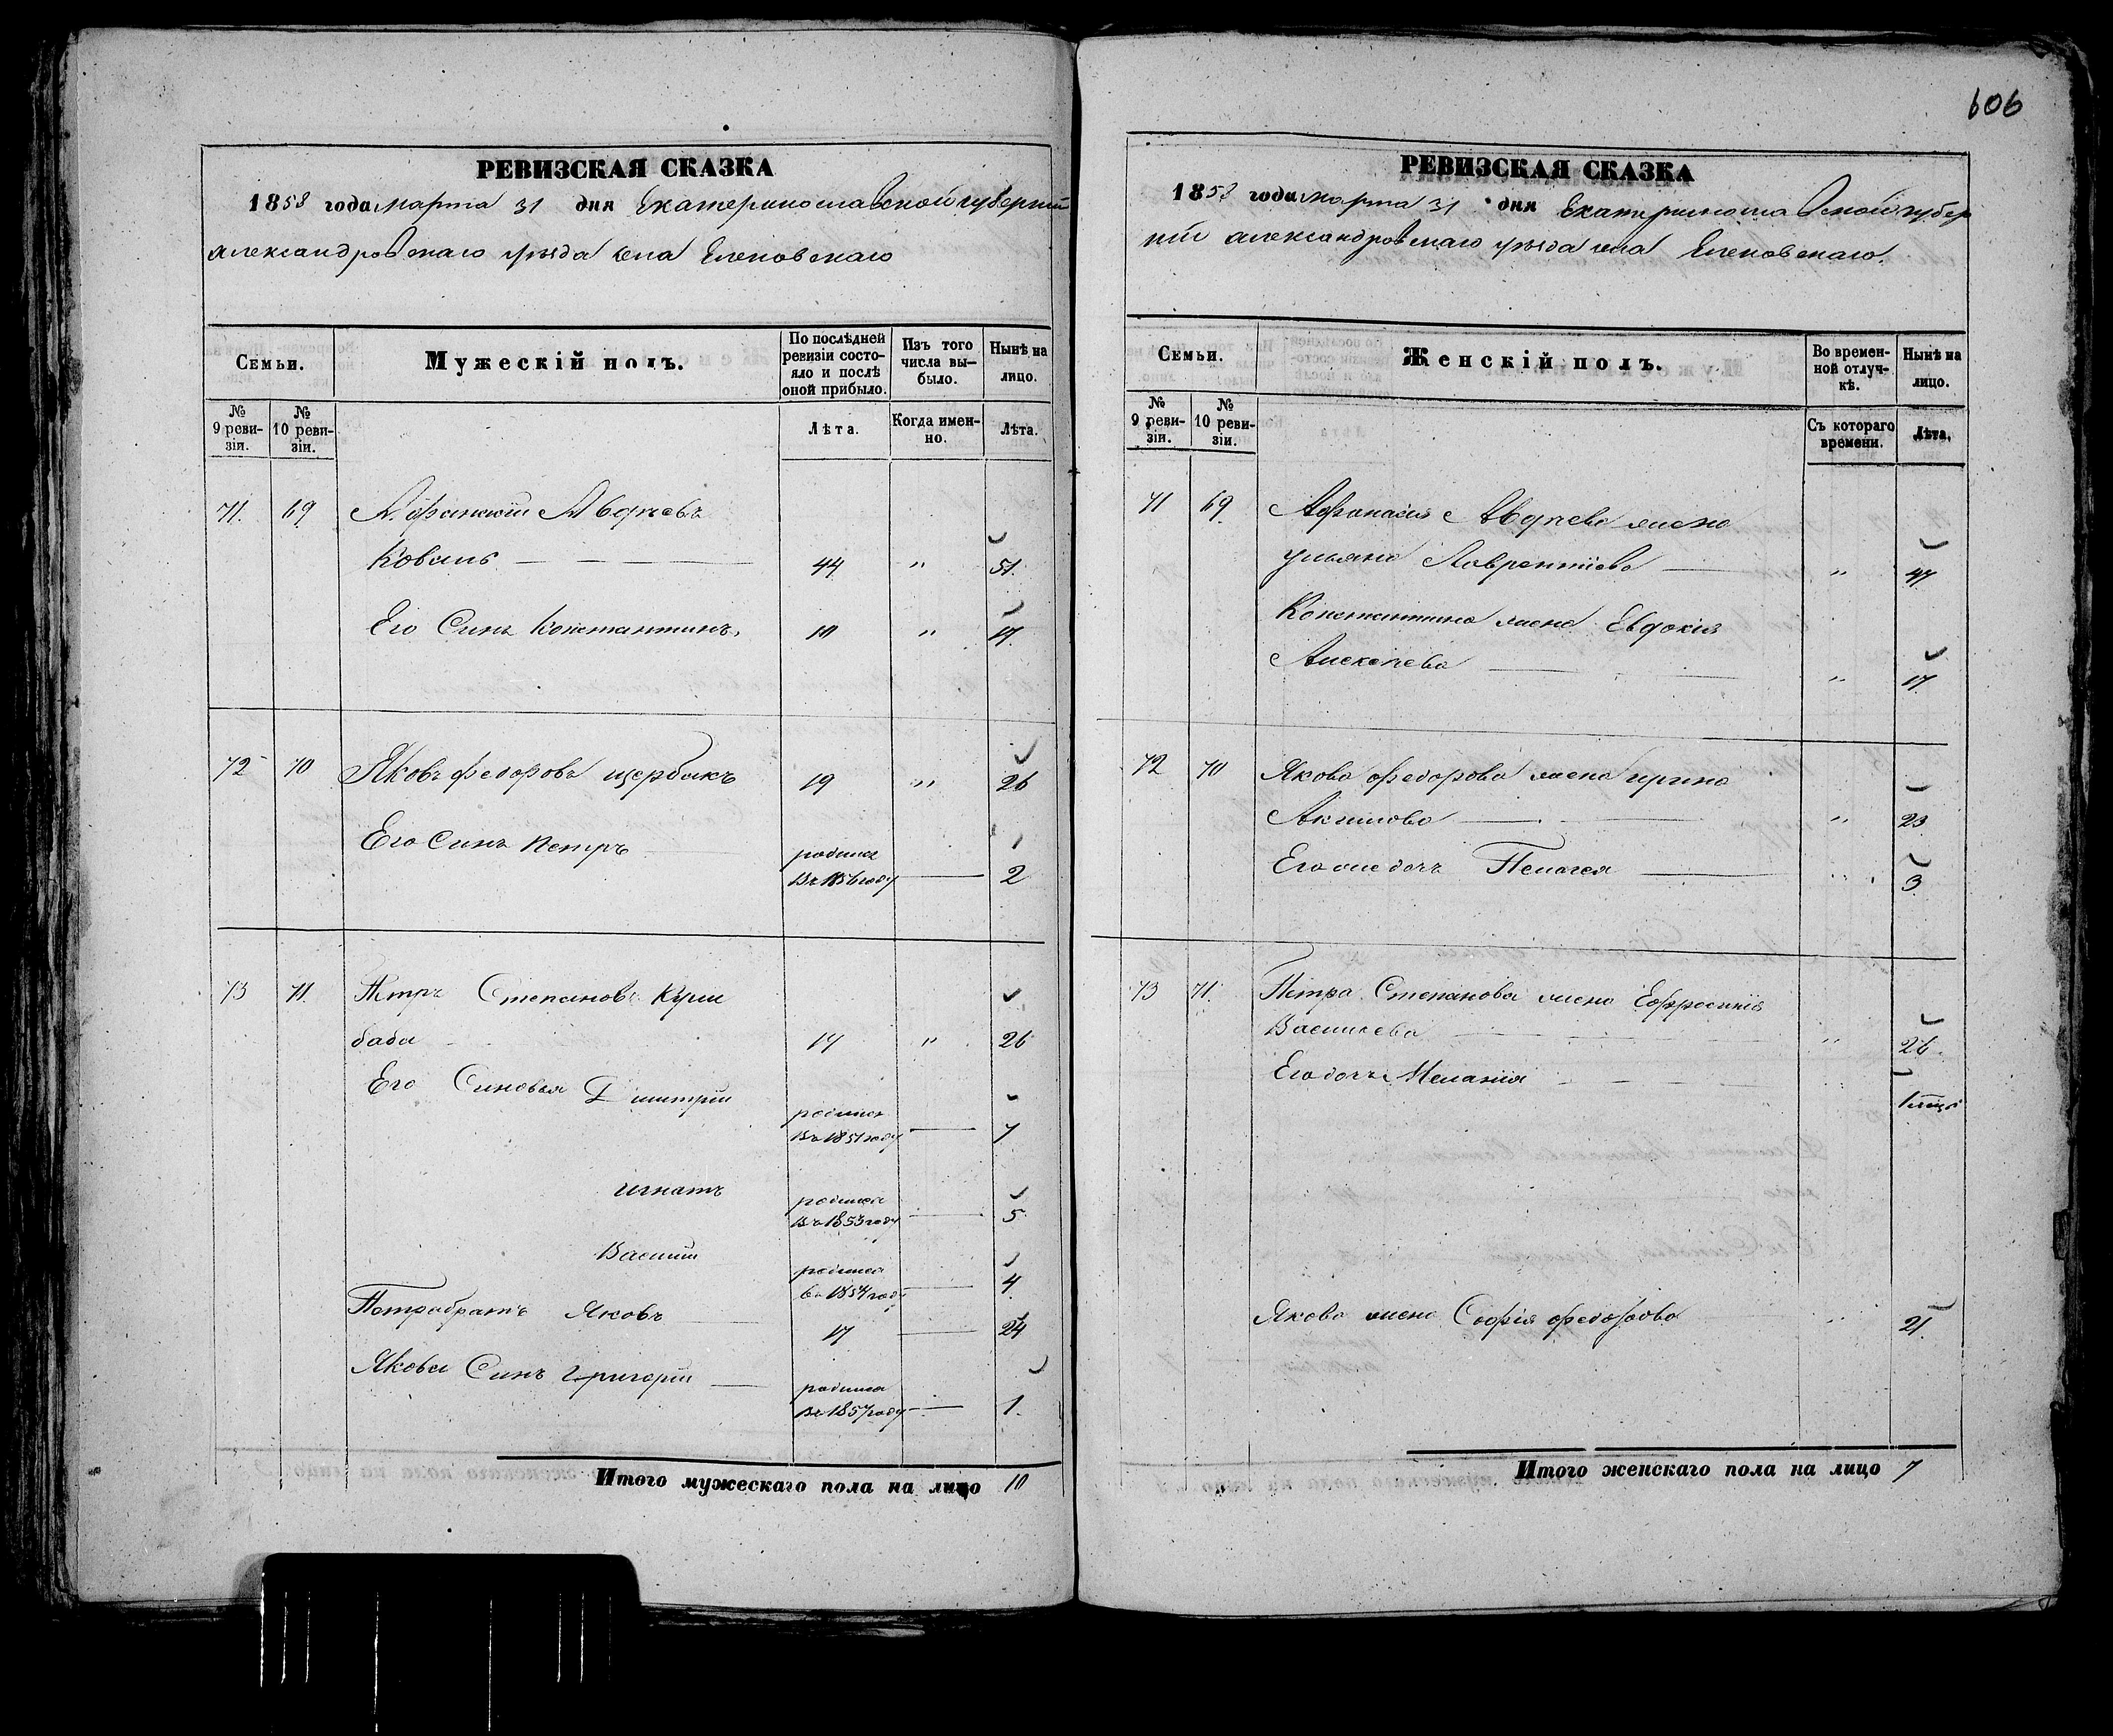 606
РЕВИЗСКАЯ СКАЗКА
1858 года марта 31 дня Екатеринославской губернии
александровскаго уезда села Еленовскаго
Семьи.
Мужескій полъ.
По послѣдней ревизіи состояло и послѣ оной прибыло.
Изъ того числа выбыло.
Нынѣ на лицо.
№ 9 ревизіи.
№ 10 ревизіи.
Лѣта.
Когда именно.
Лѣта.
71. 69 Афанасий Авдѣевъ
Коваль 44 " 51.
Его Синъ Константинъ. 10 " 17.
72 70 Яковъ федоровъ щербакъ 19 " 26
Его Синъ Петръ родился
Въ 1856 году 2
73 71. Петръ Степановъ Кули
баба 19 " 26
Его Синовья Димитрий родился
Въ 1851 году 7
игнатъ родился
Въ 1853 году 5
Василий родился
въ 1854 году 4
Петра братъ Яковъ 17 24
Якова Синъ Григорий родился
Въ 1857 году 1.
Итого мужескаго пола на лицо 10
РЕВИЗСКАЯ СКАЗКА
1858 года марта 31 дня Екатеринославской губер
нии александровскаго уезда села Еленовскаго.
Семьи.
Женскій полъ.
Во временной отлучкѣ.
Нынѣ на лицо.
№ 9 ревизіи.
№ 10 ревизіи.
Съ котораго времени.
Лѣта.
71 69. Афанасия Авдѣева жена
ульяна Лаврентиева " 47
Константина жена Евдокия
Алексѣева " 17.
72 70 Якова федорова жена ирина
Акимова " 23
Его же дочь Пелагея " 3.
73 71. Петра Степанова жена Ефросиния
Василева " 26.
Его дочь Мелания
Якова жена София федорова " 21.
Итого женскаго пола на лицо 7